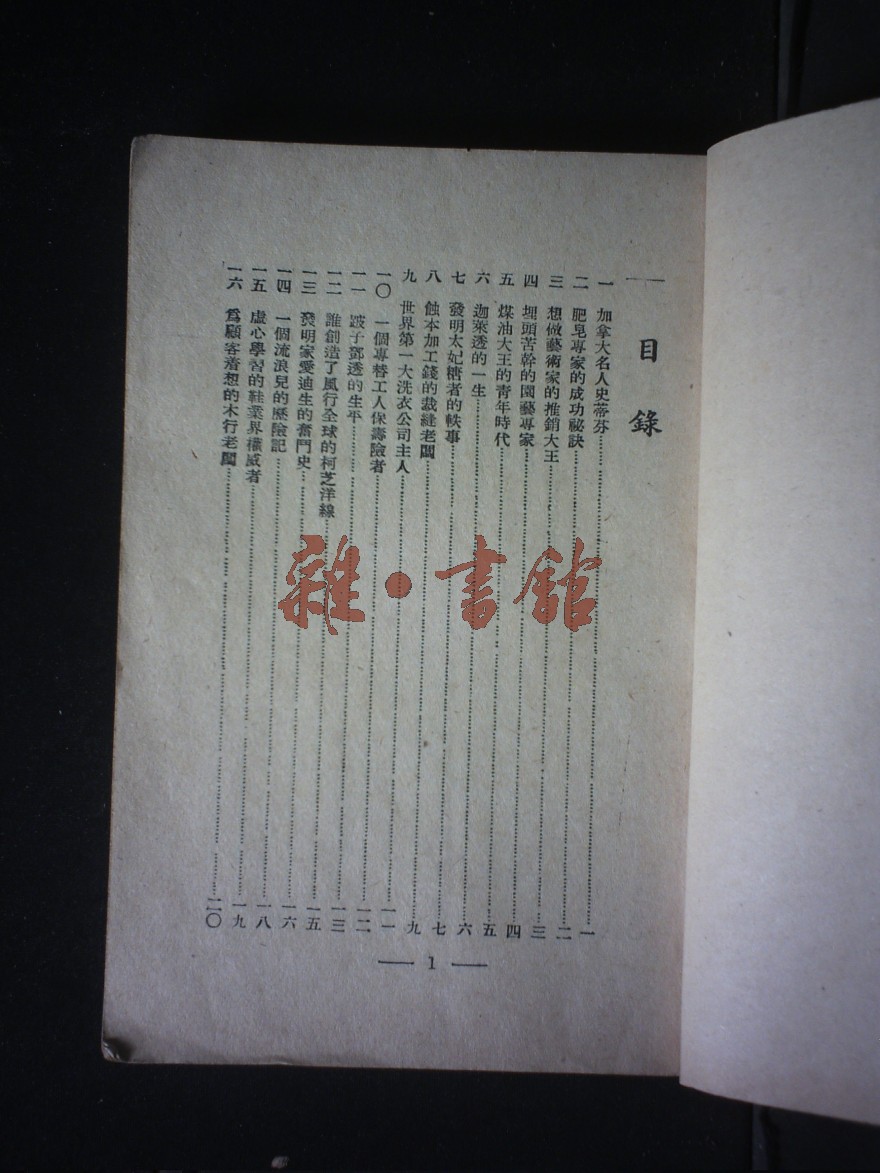 目錄
一 加拿大名人史蒂芬 一
二 肥皂專家的成功祕訣 二
三 想做藝術家的推銷大王 三
四 埋頭苦幹的園藝專家 四
五 煤油大王的靑年時代 五
六 迦萊透的一生 六
七 發明太妃糖者的軼事 七
八 蝕本加工錢的裁縫老闆 九
九 世界第一大洗衣公司主人
一〇 一個專替工人保壽險者 一一
一一 跛子鄧透的生平 一二
一二 誰創造了風行全球的柯芝洋線 一三
一三 發明家愛迪生的奮鬥史 一五
一四 一個流浪兒的歷險記 一六
一五 虛心學習的鞋業界權威者 一八
一六 爲顧客着想的木行老闆 一九
二〇
1
雜·書館